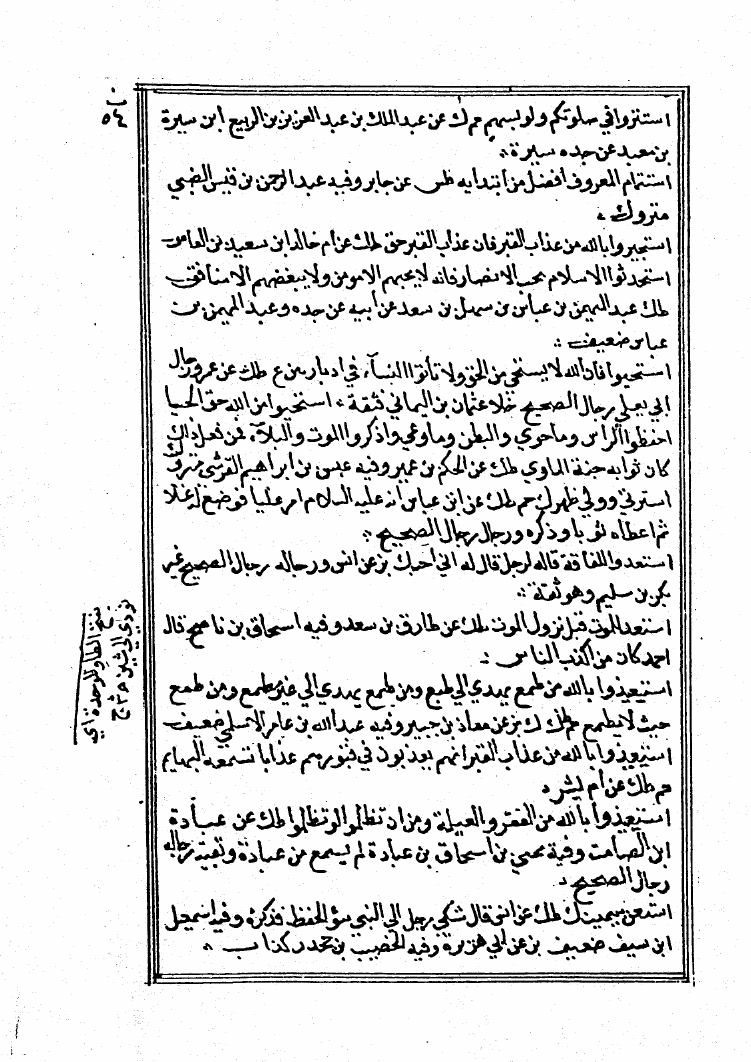 استتروا في صلوتكم ولو بسهم حم ك عن عبد الملك بن عبد العزيز بن الربيع ابن سبرة
بن معبد عن جده سبرة
استتمام المعروف افضل من ابتدايه طس عن جابر وفيه عبد الرحمن بن قيس الضبي
متروك
استجيروا بالله من عذاب القبر فان عذاب القبر حق طك عن ام خالد ابن سعيد بن العاص
استحدثوا الاسلام بحب الانصار فانه لا يحبهم الا مومن ولا يبغضهم الا منافق
طك عبد المهيمن بن عباس بن سهل بن سعد عن أبيه عن جده وعبد المهيمن بن
عباس ضعيف
استحيوا فان الله لا يستحي من الحق ولا تأتوا النسآء في ادبارهن ع طك عن عمر ورجال
ابي يعلي رجال الصحيح خلا عثمان بن اليماني ثقة استحيوا من الله حق الحيا
احفظوا الراس وما حوي والبطن وما وعي واذكروا الموت والبلاء فمن فعل ذلك
كان ثوابه جنة الماوي طك عن الحكم بن عمير وفيه عيسى بن ابراهيم القرشي متروك
استرني وولي ظهرك حم طك عن ابن عباس انه عليه السلام امر عليا فوضع له غسلا
ثم اعطاه ثوبا وذكره ورجال رجال الصحيح
استعدوا للفاقة قاله لرجل قال له اني أحبك بز عن انس ورجاله رجال الصحيح غير
بكر بن سليم وهو ثقة
استعد للموت قبل نزول الموت طك عن طارق بن سعد وفيه اسحاق بن ناصح قال
احمد كان من اكذب الناس
استعيذوا بالله من طمع يهدي الي طبع ومن طمع يهدي الي غير مطمع ومن طمع
حيث لا مطمع حم طك ك بز عن معاذ بن جبير وفيه عبد الله بن عامر الاسلمي ضعيف
استعيذوا بالله من عذاب القبر انهم يعذبون في قبورهم عذابا تسمعه البهايم
حم طك عن أم مبشر
استعيذوا بالله من الفقر والعيلة ومن ان تظلموا او تظلموا طك عن عبادة
ابن الصامت وفيه يحيي بن اسحاق بن عبادة لم يسمع من عبادة وبقية رجاله
رجال الصحيح
استعن بيمينك طك عن انس قال شكي رجل الي النبي سؤ الحفظ فذكره وفيه اسمعيل
ابن سيف ضعيف بز عن ابي هريرة وفيه الخصيب بن جحدر كذاب